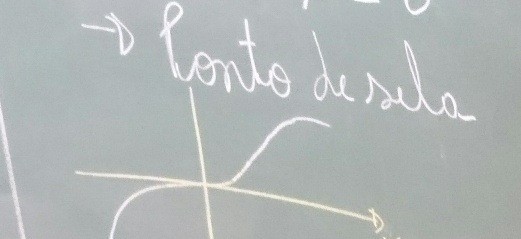 → Ponto de sela